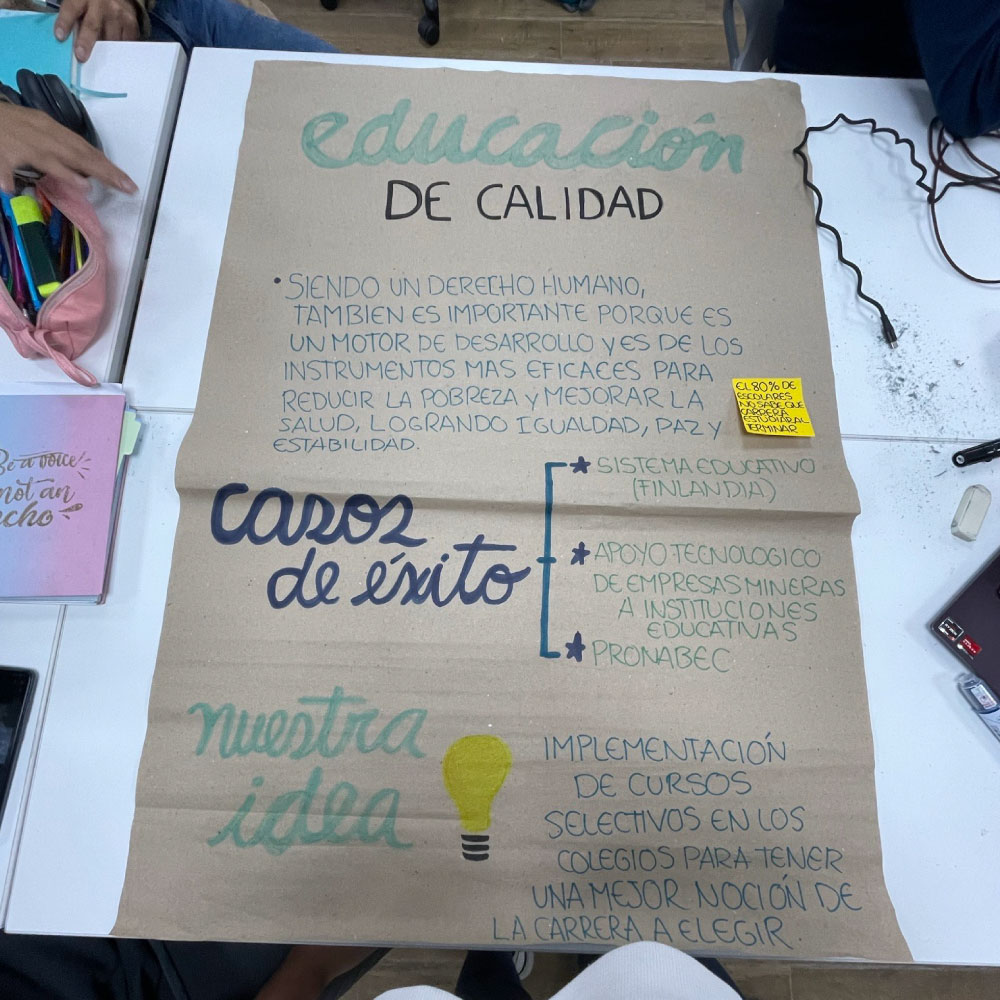 educación
DE CALIDAD
• SIENDO UN DERECHO HUMANO,
TAMBIEN ES IMPORTANTE PORQUE ES
UN MOTOR DE DESARROLLO Y ES DE LOS
INSTRUMENTOS MAS EFICACES PARA
REDUCIR LA POBREZA Y MEJORAR LA
SALUD, LOGRANDO IGUALDAD, PAZ Y
ESTABILIDAD.
EL 80% DE
ESCOLARES
NO SABE QUE
CARRERA
ESTUDIAR AL
TERMINAR
casos
de éxito
SISTEMA EDUCATIVO
(FINLANDIA)
APOYO TECNOLOGICO
DE EMPRESAS MINERAS
A INSTITUCIONES
EDUCATIVAS
PRONABEC
nuestra
idea
IMPLEMENTACIÓN
DE CURSOS
SELECTIVOS EN LOS
COLEGIOS PARA TENER
UNA MEJOR NOCIÓN DE
LA CARRERA A ELEGIR.
Be a voice
not an
echo